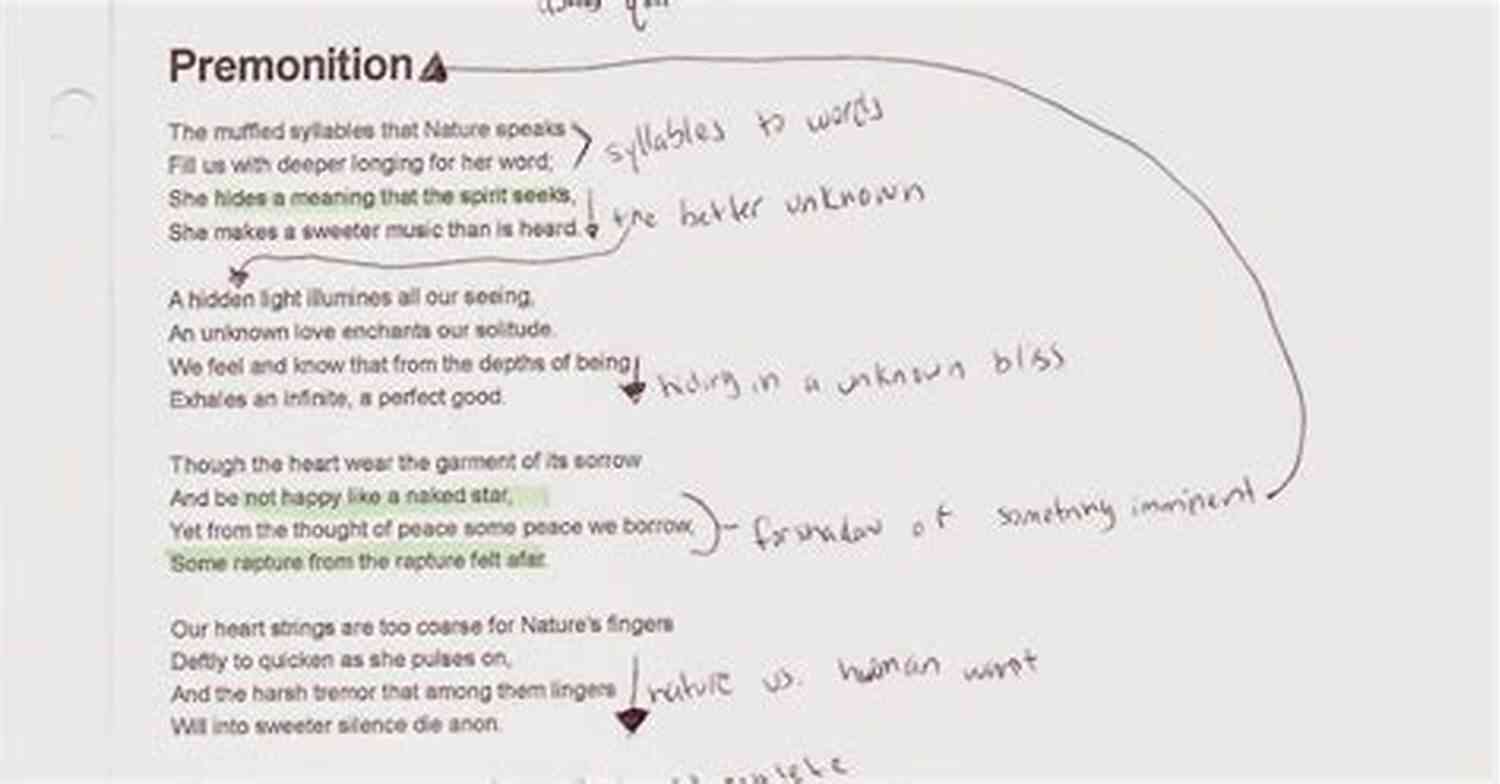 Premonition
The muffled syllables that Nature speaks
Fill us with deeper longing for her word;
syllables to words
She hides a meaning that the spirit seeks,
She makes a sweeter music than is heard.
the better unknown
A hidden light illumines all our seeing,
An unknown love enchants our solitude.
We feel and know that from the depths of being
Exhales an infinite, a perfect good.
hiding in a unknown bliss
Though the heart wear the garment of its sorrow
And be not happy like a naked star,
Yet from the thought of peace some peace we borrow,
Some rapture from the rapture felt afar.
of something imminent
Our heart strings are too coarse for Nature's fingers
Deftly to quicken as she pulses on,
And the harsh tremor that among them lingers
Will into sweeter silence die anon.
nature vs. human want